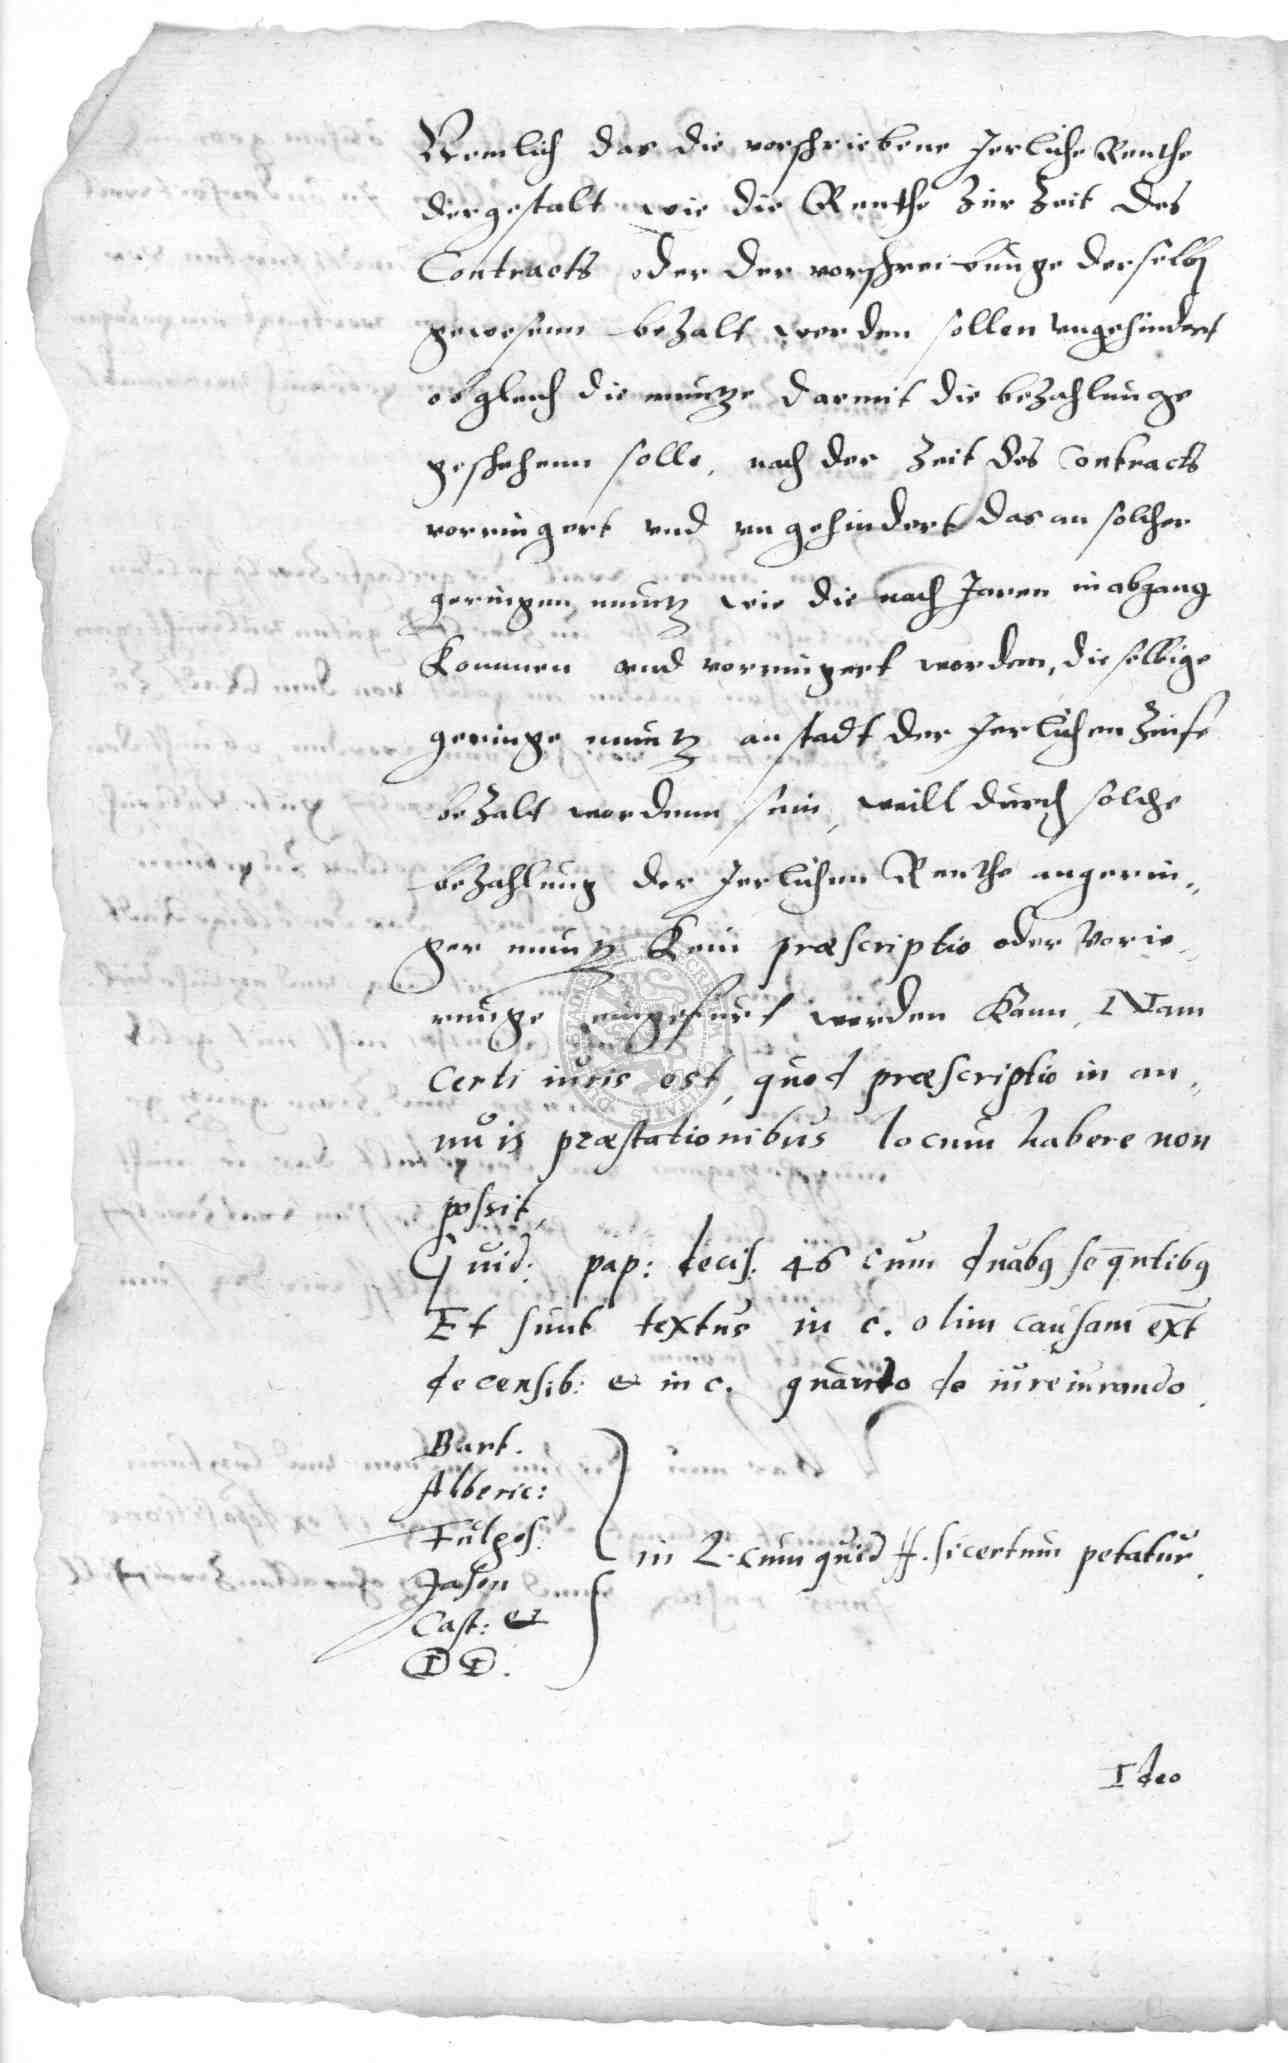 Nemlich das die vorschriebene Jerliche Renthe
dergestalt wie die Renthe zur Zeit des
Contracts oder der vorschreibunge derselbn
gewesenn bezalt werden sollen ungehindert
ob gleich die muntze darmit die bezahlunge
geschehenn solle, nach der Zeit des Contracts
vorringert und ungehindert das an solcher
geringen muntz wie die nach Jaren in abgang
kommen und vorringert worden, dieselbige
geringe muntz anstadt der Jerlichen Zinse
bezalt wordenn sein, weill durch solche
bezahlung der Jerlichen Renthe an gerin„
ger muntz kein præscriptio oder Vorie„
runge eingefurt werden kann, Nam
certi iuris est, quod præscriptio in an„
nuis præstationibus locum habere non
possit,
Guid: pap: decis: 46 cum duabq seqntibq
Et sunt textus in c. olim causam ext
de censib: & in c. quanto de iureiurando.
Bart.
Alberic:
Fulgos:
Jason
Cast: &
DD.
in L. cum quid ff. si certum petatur.
Ideo